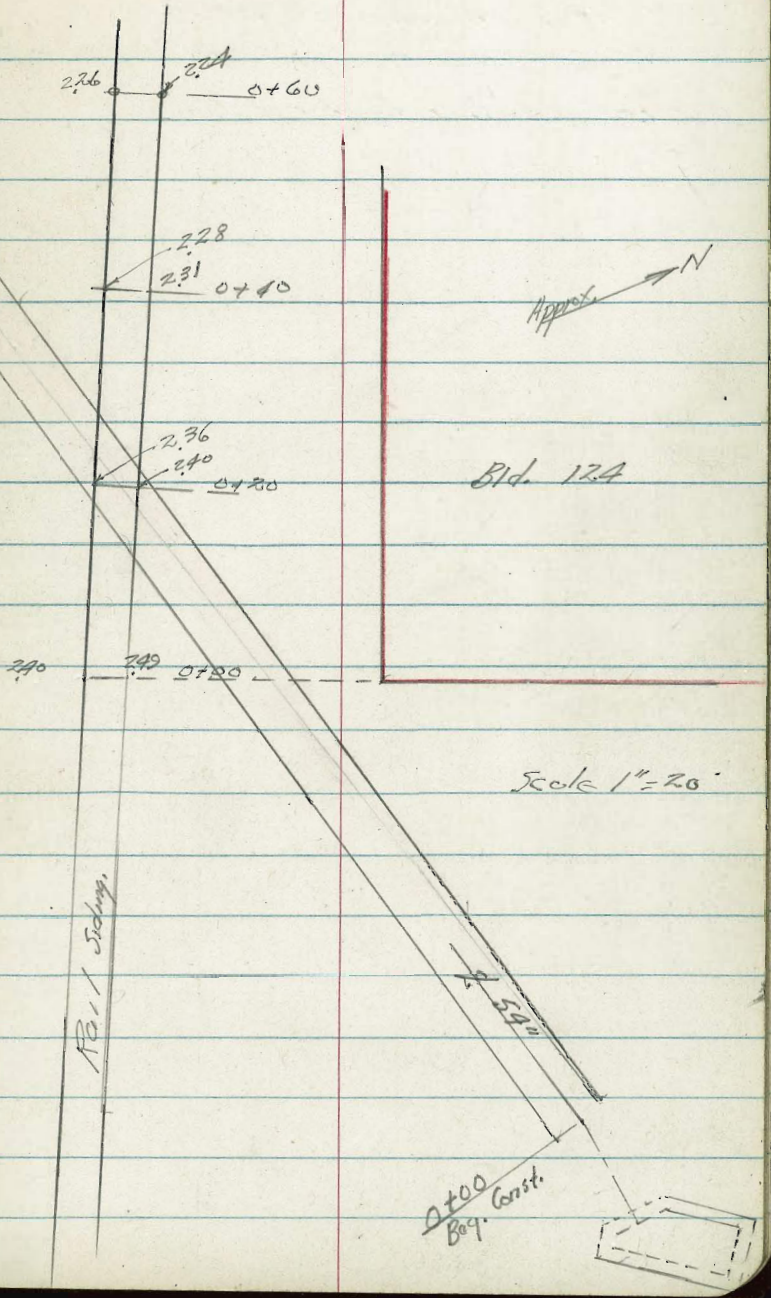 2.26 2.24 0+60
2.28
2.31 0+40
Approx. N
2.36
2.40 0+20
Bld. 124
2.40 2.49 0+00
Scale 1"=20'
Rail Siding.
54"
0+00
Beg. Const.